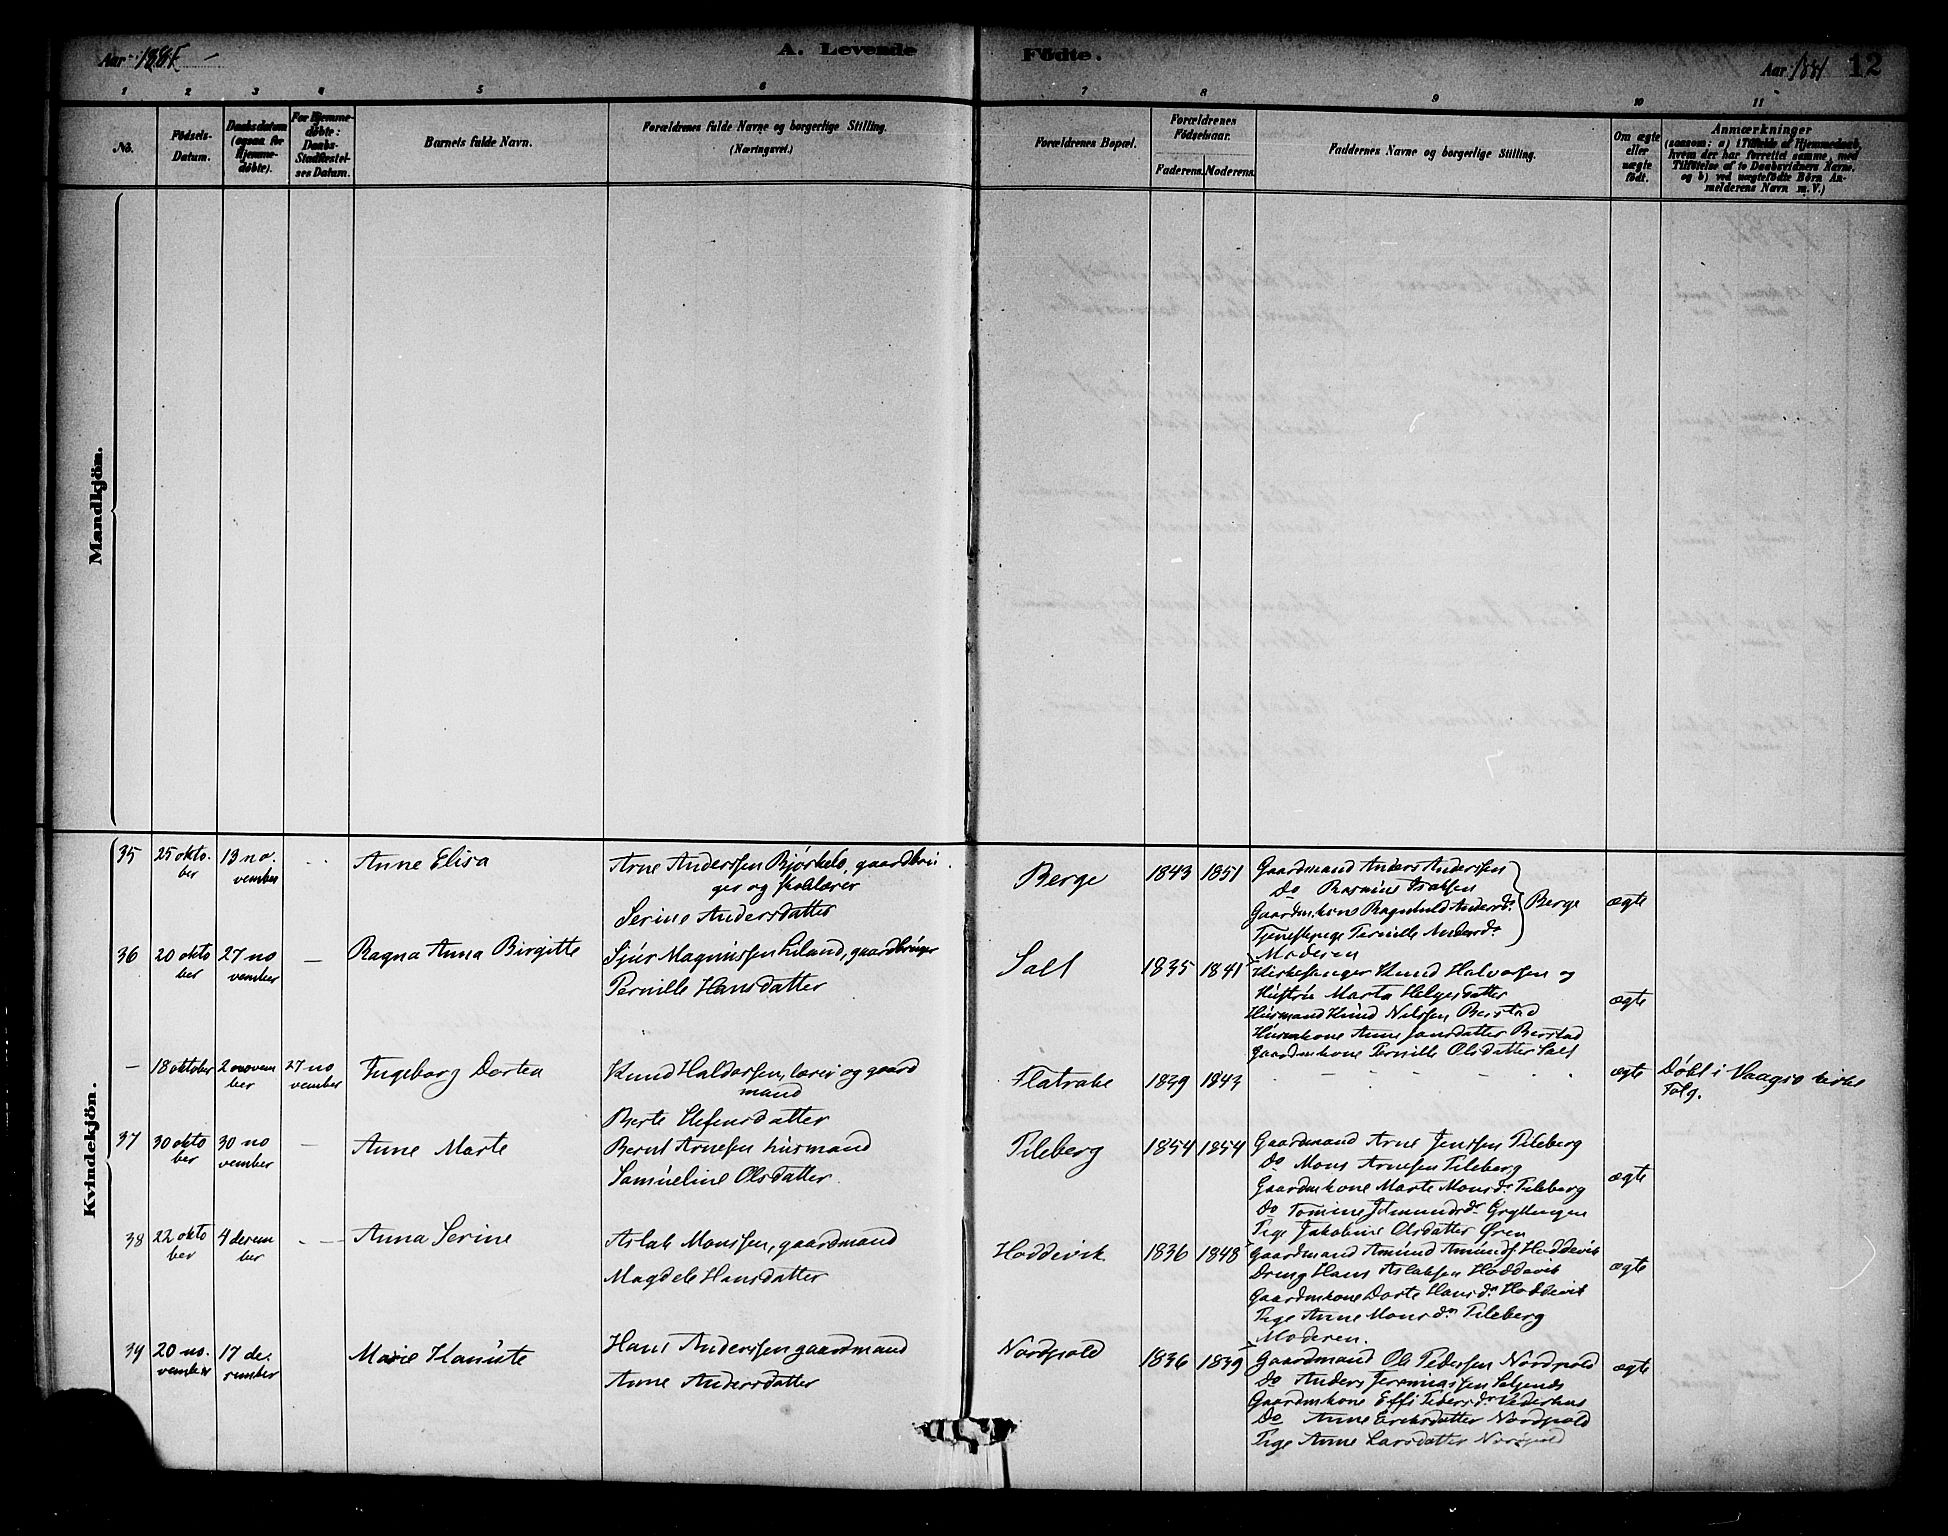 Aar 1881
A. Levende Födte.
Aar 1881 12
1 2 3 4 5 6 7 8 9 10 11
No.
Födsels-
Datum.
Daabsdatum
(ogsaa for
Hjemme-
døbte).
For Hjemme-
døbte:
Daabs-
Stadfæstel-
ses Datum.
Barnets fulde Navn.
Forældrenes fulde Navne og borgerlige Stilling.
(Næringsvei.)
Forældrenes Bopæl.
Forældrenes
Fødselsaar.
Faderens. Moderens.
Faddernes Navne og borgerlige Stilling.
Om ægte
eller
uægte
født.
Anmærkninger
(saasom: a) i Tilfælde af Hjemmedaab,
hvem der har forrettet samme, med
Tilføielse af to Daabsvidners Navne,
og b) ved uægtefødte Børn An-
melderens Navn m. V.)
Mandkjön.
Kvindekjön.
35
25 okto.
ber
13 no.
vember
Anne Elisa
Arne Anderssen Bjørkelo, gaardbru
ger og skolelærer
Serine Andersdatter
Berge
1843 1851
Gaardmand Anders Anderssen
Do Rasmus Isaksen
Gaardmkone Ragnhild Andersdr
Tjenestepige Pernille Andersdr
Moderen
Berge
ægte
36
20 okto
ber
27 no
vember
—
Ragna Anna Birgitte
Sjur Magnussen Liland, gaardbruger
Pernille Hansdatter
Salt
1835 1841
Kirkesanger Knud Halvorsen og
Hustru Marta Helgesdatter
Husmand Knud Nilssen Berstad
Husmkone Anne Jonsdatter Berstad
Gaardmkone Pernille Olsdatter Salt
ægte
—
18 oktober
2 novem
ber
27 no
vember
Ingeborg Dortea
Knud Haldorsen, lærer og gaard
mand
Berte Stefensdatter
Flatrake
1839 1843
ægte
Døbt i Vaagsø kirke
37
30 okto
ber
30 no
vember
—
Anne Marte
Bernt Arnesen husmand
Samueline Olsdatter
Pileberg
1854 1854
Gaardmand Arne Jenssen Pileberg
Do Mons Arnesen Pileberg
Gaardmkone Marte Monsdr Pileberg
Do Tomine Ismundsdr Gryttingen
Pige Jakobine Olsdatter Ören
ægte
38
22 okto
ber
4 decem
ber
—
Anna Serine
Aslak Monssen, gaardmand
Magdele Hansdatter
Hoddevik
1836 1848
Gaardmand Amund Amunds. Hoddevik
Dreng Hans Aslaksen Hoddevik
Gaardmkone Dorte Hansdr Hoddevik
Pige Anne Monsdr Pileberg
Moderen.
ægte
39
20 no.
vember
17 de.
cember
Marie Hanúte
Hans Anderssen gaardmand
Anne Andersdatter
Nordpold
1836 1839
Gaardmand Ole Pedersen Nordpold
Do Anders Jeremiassen
Gaardmkone Effi Pedersdr
Do Anne Eriksdatter Nordpold
Pige Anne Larsdatter Nordpold
ægte